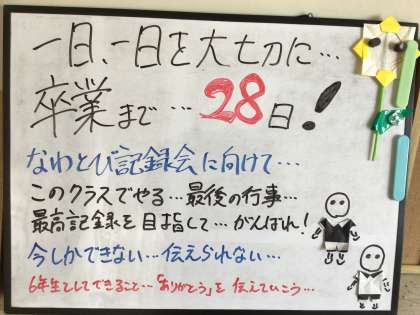 一日、一日を大切に…
卒業まで…28日!
なわとび記録会に向けて…
このクラスでやる…最後の行事…
最高記録を目指して…がんばれ!
今しかできない…伝えられない…
6年生としてできること…「ありがとう」を伝えていこう…